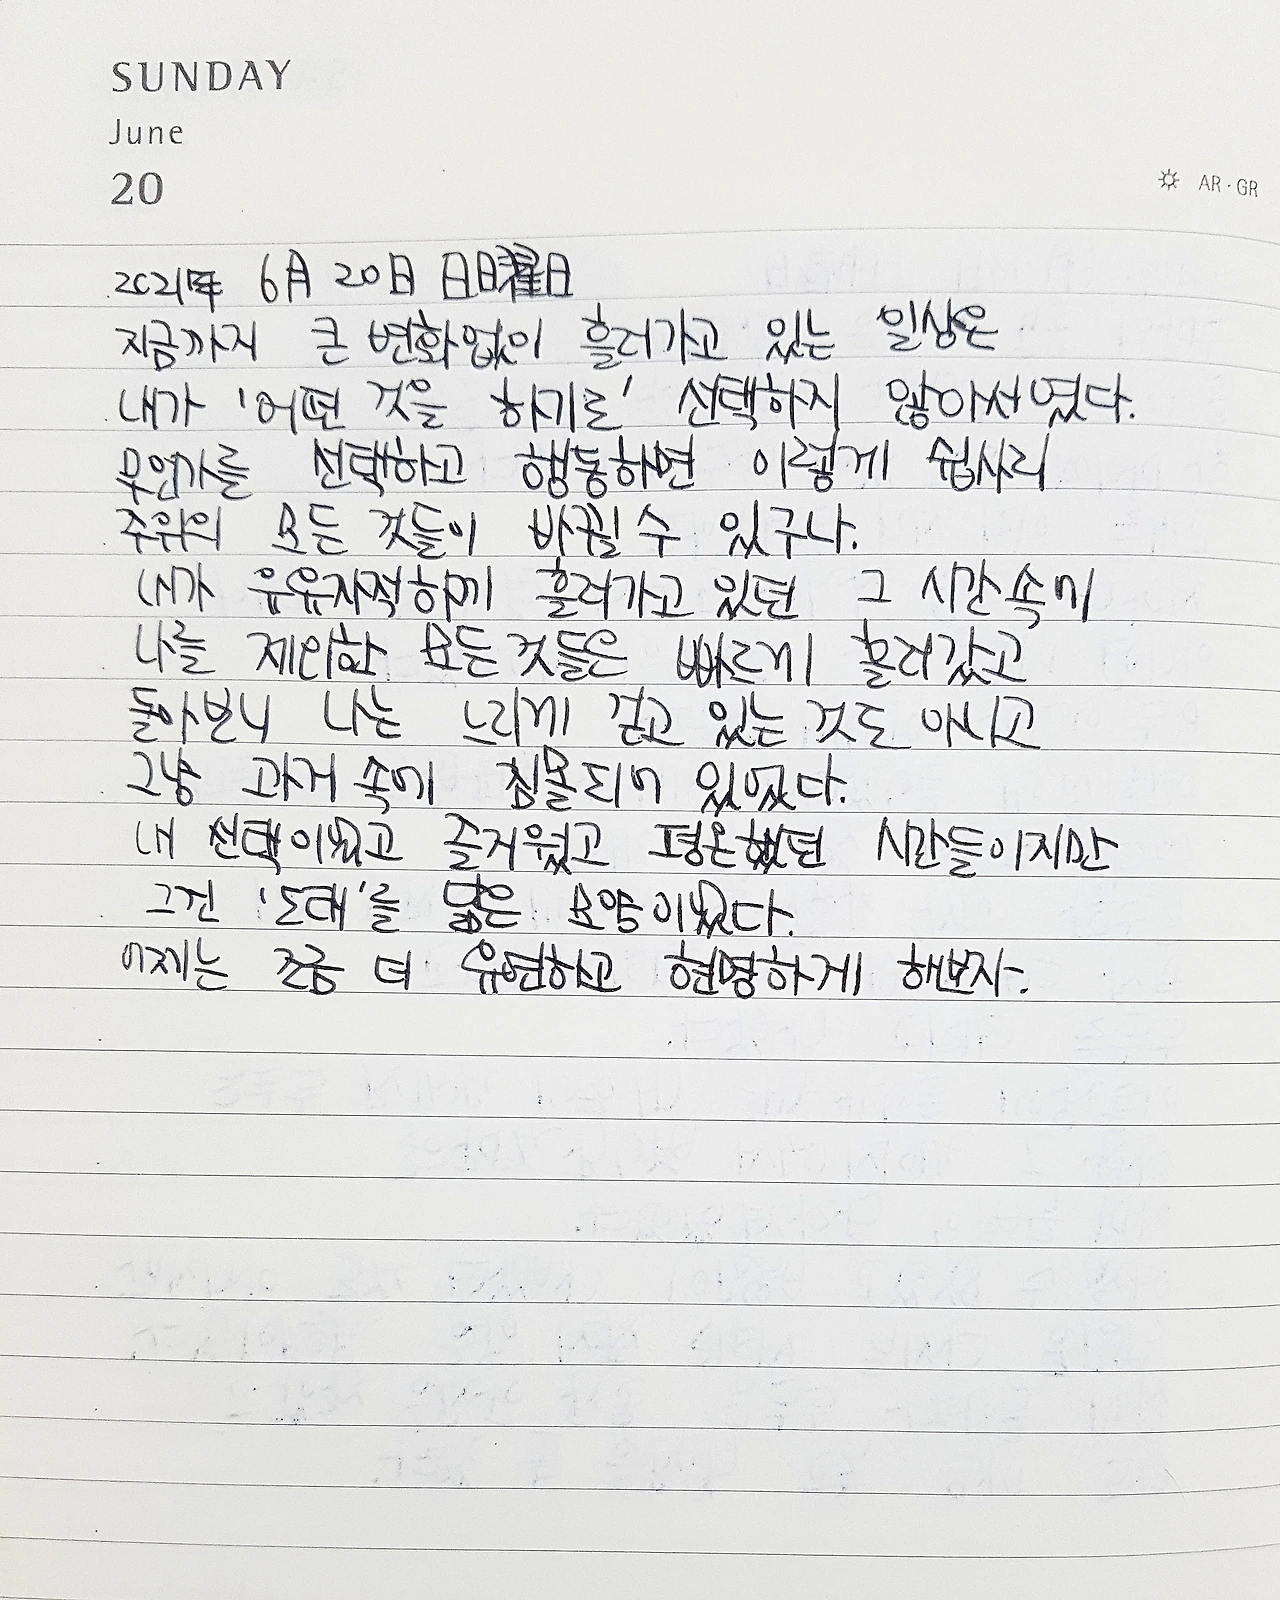 SUNDAY
June
20
AR·GR
2021年 6月 20日 日曜日
지금까지 큰 변화없이 흘러가고 있는 일상은
내가 '어떤 것을 하기로' 선택하지 않아서였다.
무언가를 선택하고 행동하면 이렇게 쉽사리
주위의 모든 것들이 바뀔 수 있구나.
내가 유유자적하게 흘러가고 있던 그 시간 속에
나를 제외한 모든 것들은 빠르게 흘러갔고
돌아보니 나는 느리게 걷고 있는 것도 아니고
그냥 과거 속에 침몰되어 있었다.
내 선택이었고 즐거웠고 평온했던 시간들이지만
그건 '도태'를 닮은 모양이었다.
이제는 조금 더 유연하고 현명하게 해보자.